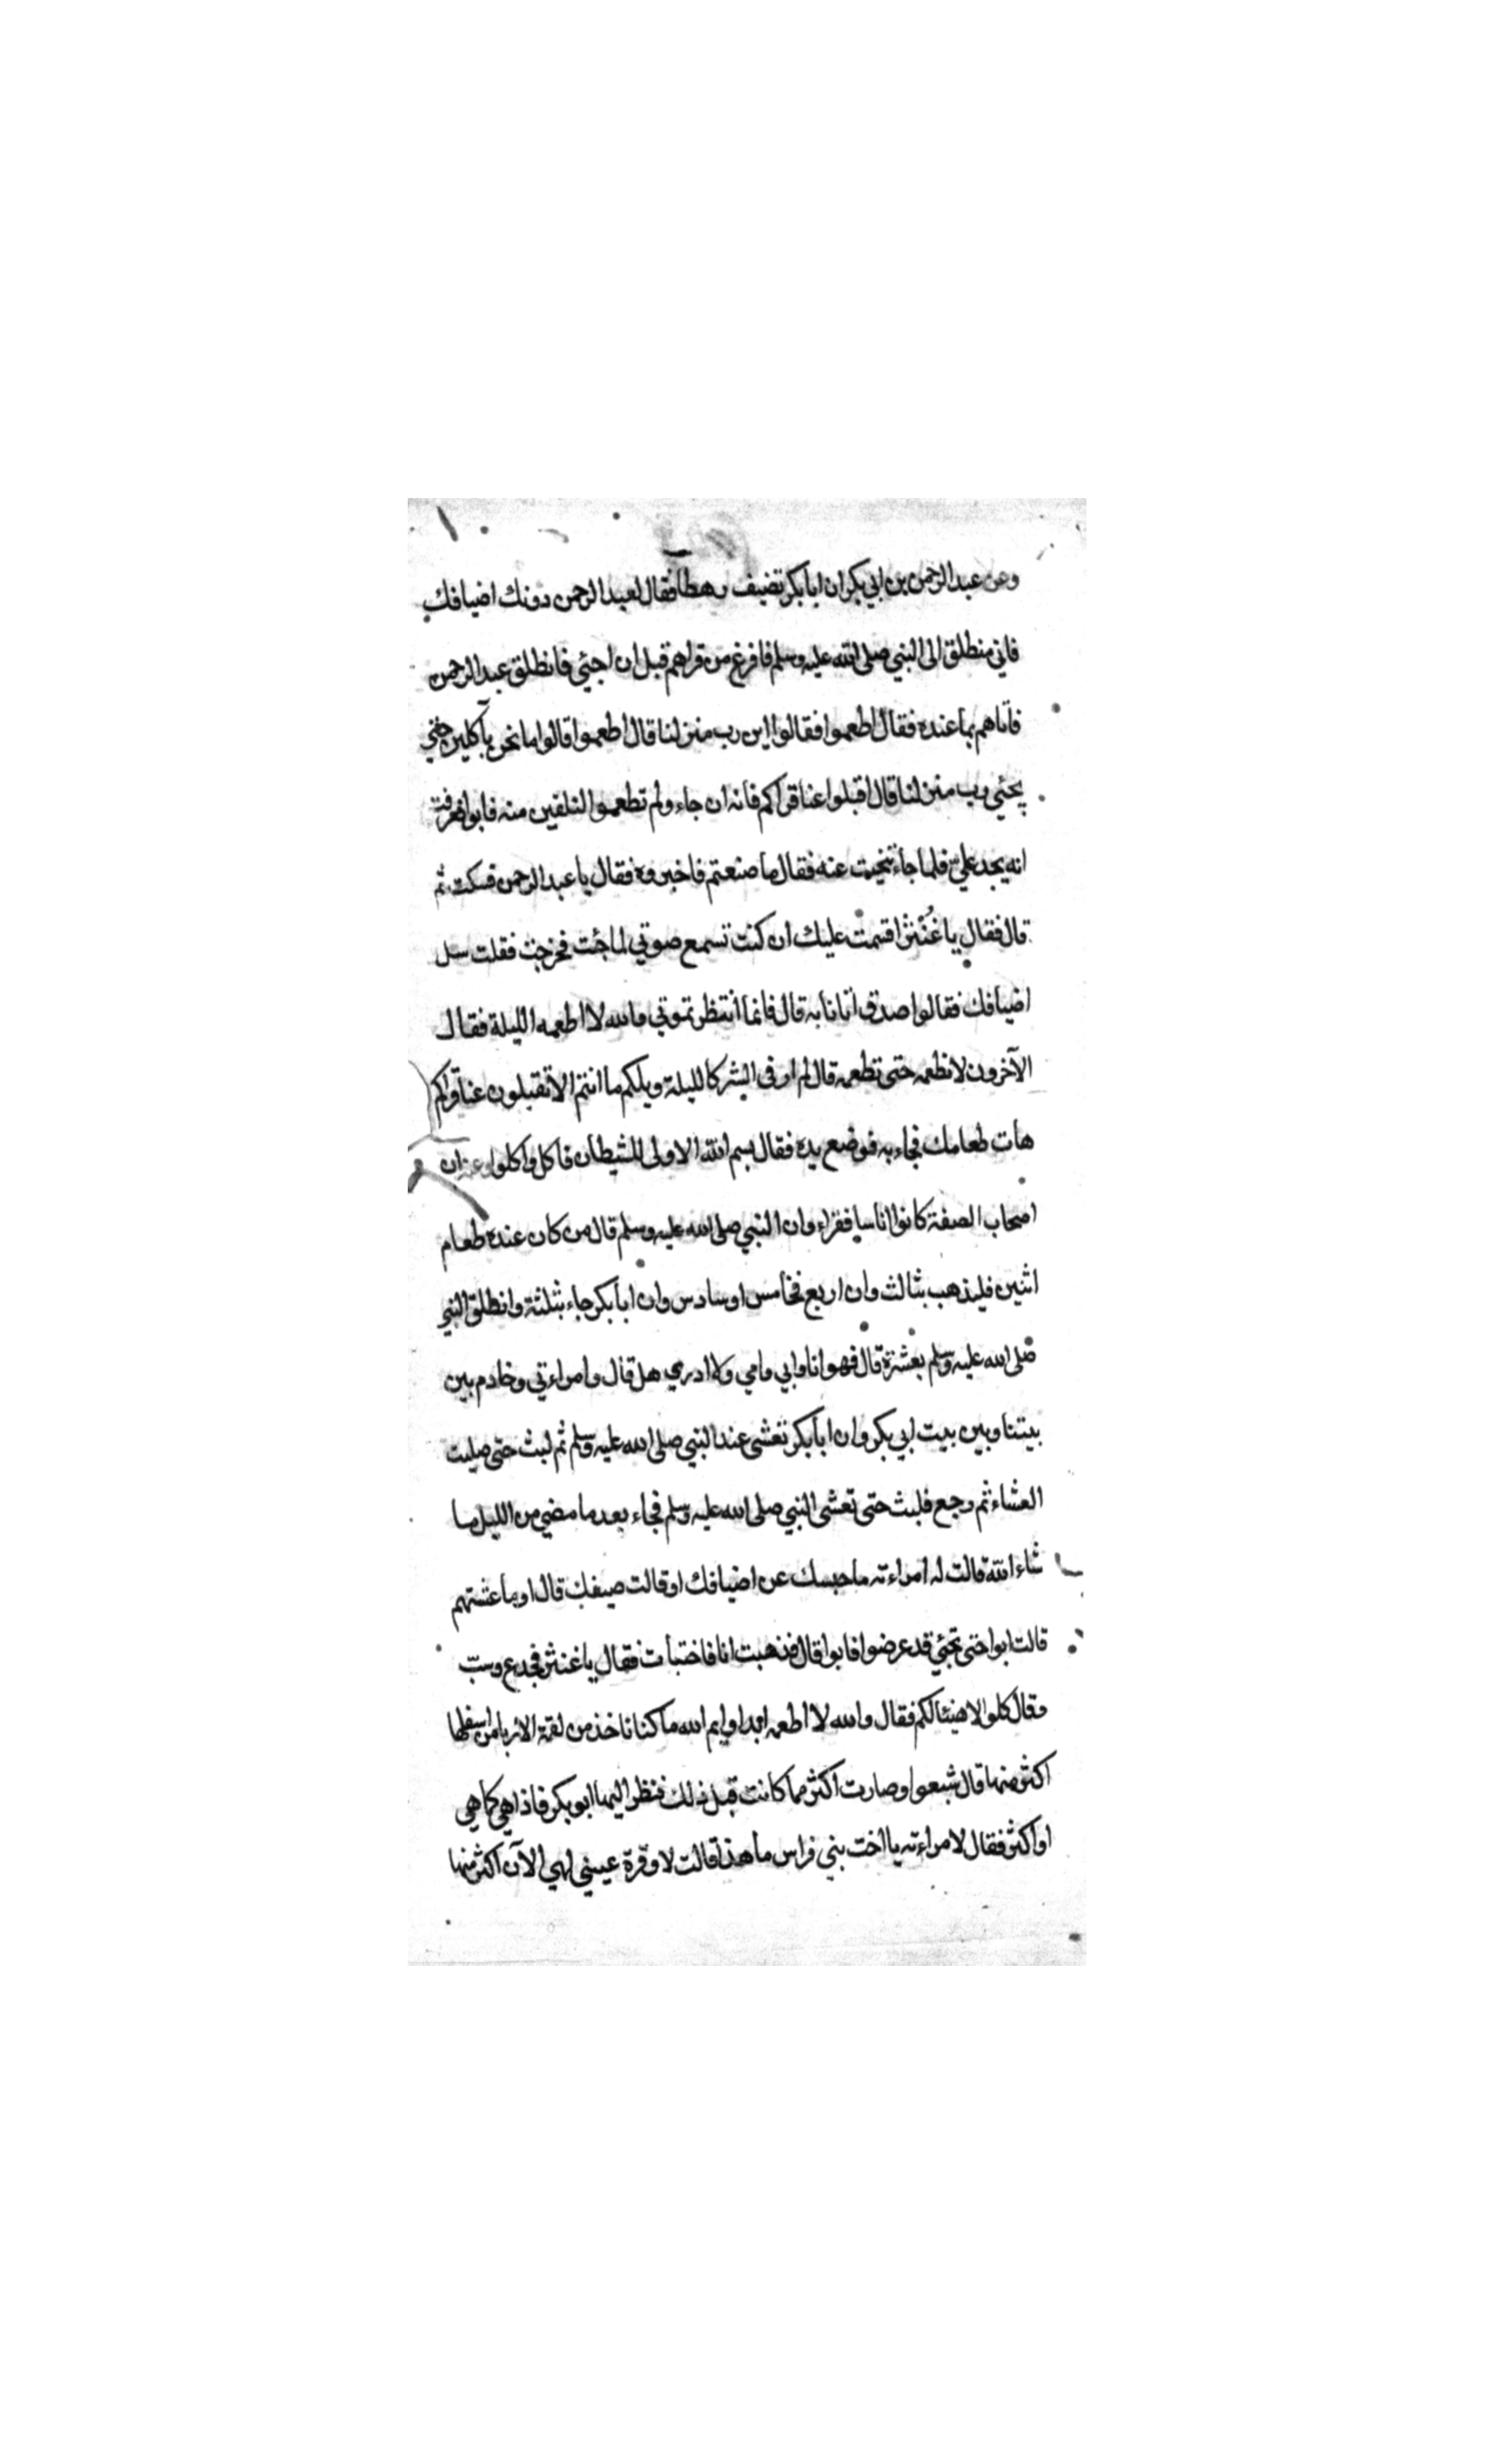 وعن عبد الرحمن بن ابي بكر ان ابا بكر تضيف رهطا فقال لعبد الرحمن دونك اضيافك
فاني منطلق الى النبي صلى الله عليه وسلم فافرغ من قراهم قبل ان اجئي فانطلق عبد الرحمن
فأتاهم بما عنده فقال اطعموا فقالوا اين رب منزلنا قال اطعموا قالوا ما نحن بآكلين حتى
يجئي رب منزلنا قال اقبلوا عنا قراكم فانه ان جاء ولم تطعموا لنلقين منه فابوا فعرفت
انه يجد عليّ فلما جاء تنحيت عنه فقال ما صنعتم فاخبروه فقال يا عبد الرحمن فسكت ثم
قال فقال يا غُنْثر اقسمت عليك ان كنت تسمع صوتي لما جئت فخرجت فقلت سل
اضيافك فقالوا صدق اتانا به قال فانما انتظرتموني والله لا اطعمه الليلة فقال
الآخرون لا نطعمه حتى تطعمه قال لم ار في الشر كالليلة ويلكم ما انتم الا تقبلون عنا قراكم
هات طعامك فجاء به فوضع يده فقال بسم الله الاولى للشيطان فاكل واكلوا وعنه ان
اصحاب الصفة كانوا اناسا فقراء وان النبي صلى الله عليه وسلم قال من كان عنده طعام
اثنين فليذهب بثالث وان اربع فخامس او سادس وان ابا بكر جاء بثلثة وانطلق النبي
صلى الله عليه وسلم بعشرة قال فهو انا وابي وامي ولا ادري هل قال وامراءتي وخادم بين
بيتنا وبين بيت ابي بكر وان ابا بكر تعشى عند النبي صلى الله عليه وسلم ثم لبث حتى صليت
العشاء ثم رجع فلبث حتى تعشى النبي صلى الله عليه وسلم فجاء بعد ما مضى من الليل ما
شاء الله قالت له امراءته ما حبسك عن اضيافك او قالت ضيفك قال او ما عشتهم
قالت ابوا حتى تجئي قد عرضوا فابوا قال فذهبت انا فاختبأت فقال يا غنثر فجدع وسبّ
وقال كلوا لا هنيئا لكم فقال والله لا اطعمه ابدا وايم الله ما كنا ناخذ من لقمة الا ربا من اسفلها
اكثر منها قال شبعوا وصارت اكثر مما كانت قبل ذلك فنظر اليها ابو بكر فاذا هي كما هي
او اكثر فقال لامراءته يا اخت بني فراس ما هذا قالت لا وقرة عيني لهي الآن اكثر منها